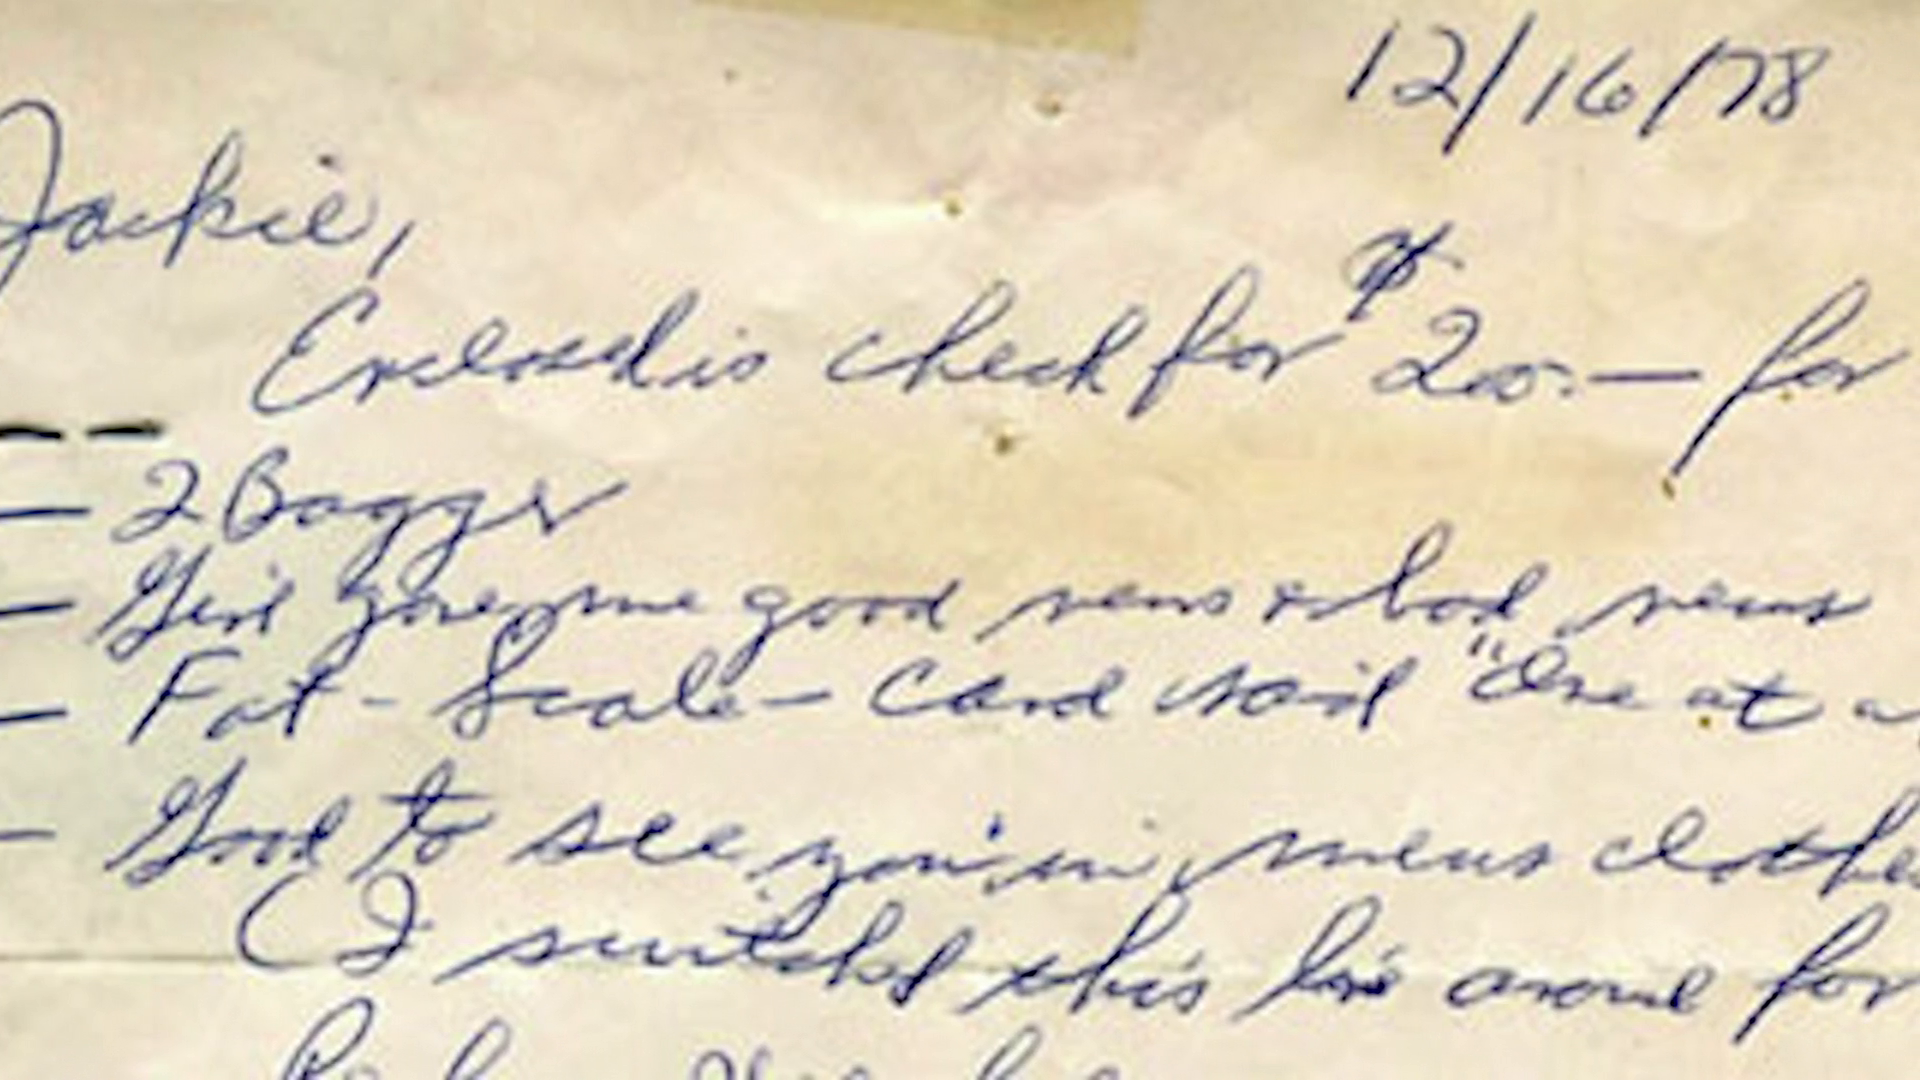 12/16/78
Jackie,
Enclosed is check for $200.— for
— 2 Bagger
— Girl gave me good news & bad news
— Fat - Scale - Card said "One at a
— Good to see you in mens clothes
(I switched this line around for